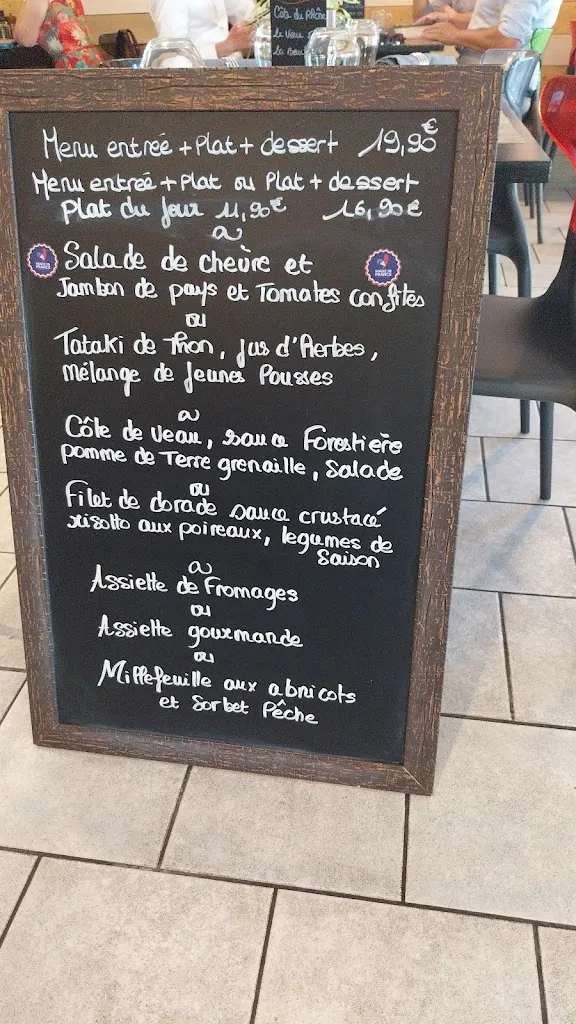 Côte du Rhône
Menu entrée + Plat + dessert 19,90€
Menu entrée + Plat ou Plat + dessert
Plat du Jour 11,90€ 16,90€
Salade de chèvre et
Jambon de pays et Tomates confites
ou
Tataki de Thon, jus d'Herbes,
Mélange de Jeunes Pousses
Côte de Veau, sauce Forestière
pomme de Terre grenaille, Salade
ou
Filet de dorade sauce crustacé
risotto aux poireaux, legumes de
Saison
Assiette de Fromages
ou
Assiette gourmande
ou
Millefeuille aux abricots
et Sorbet Pêche